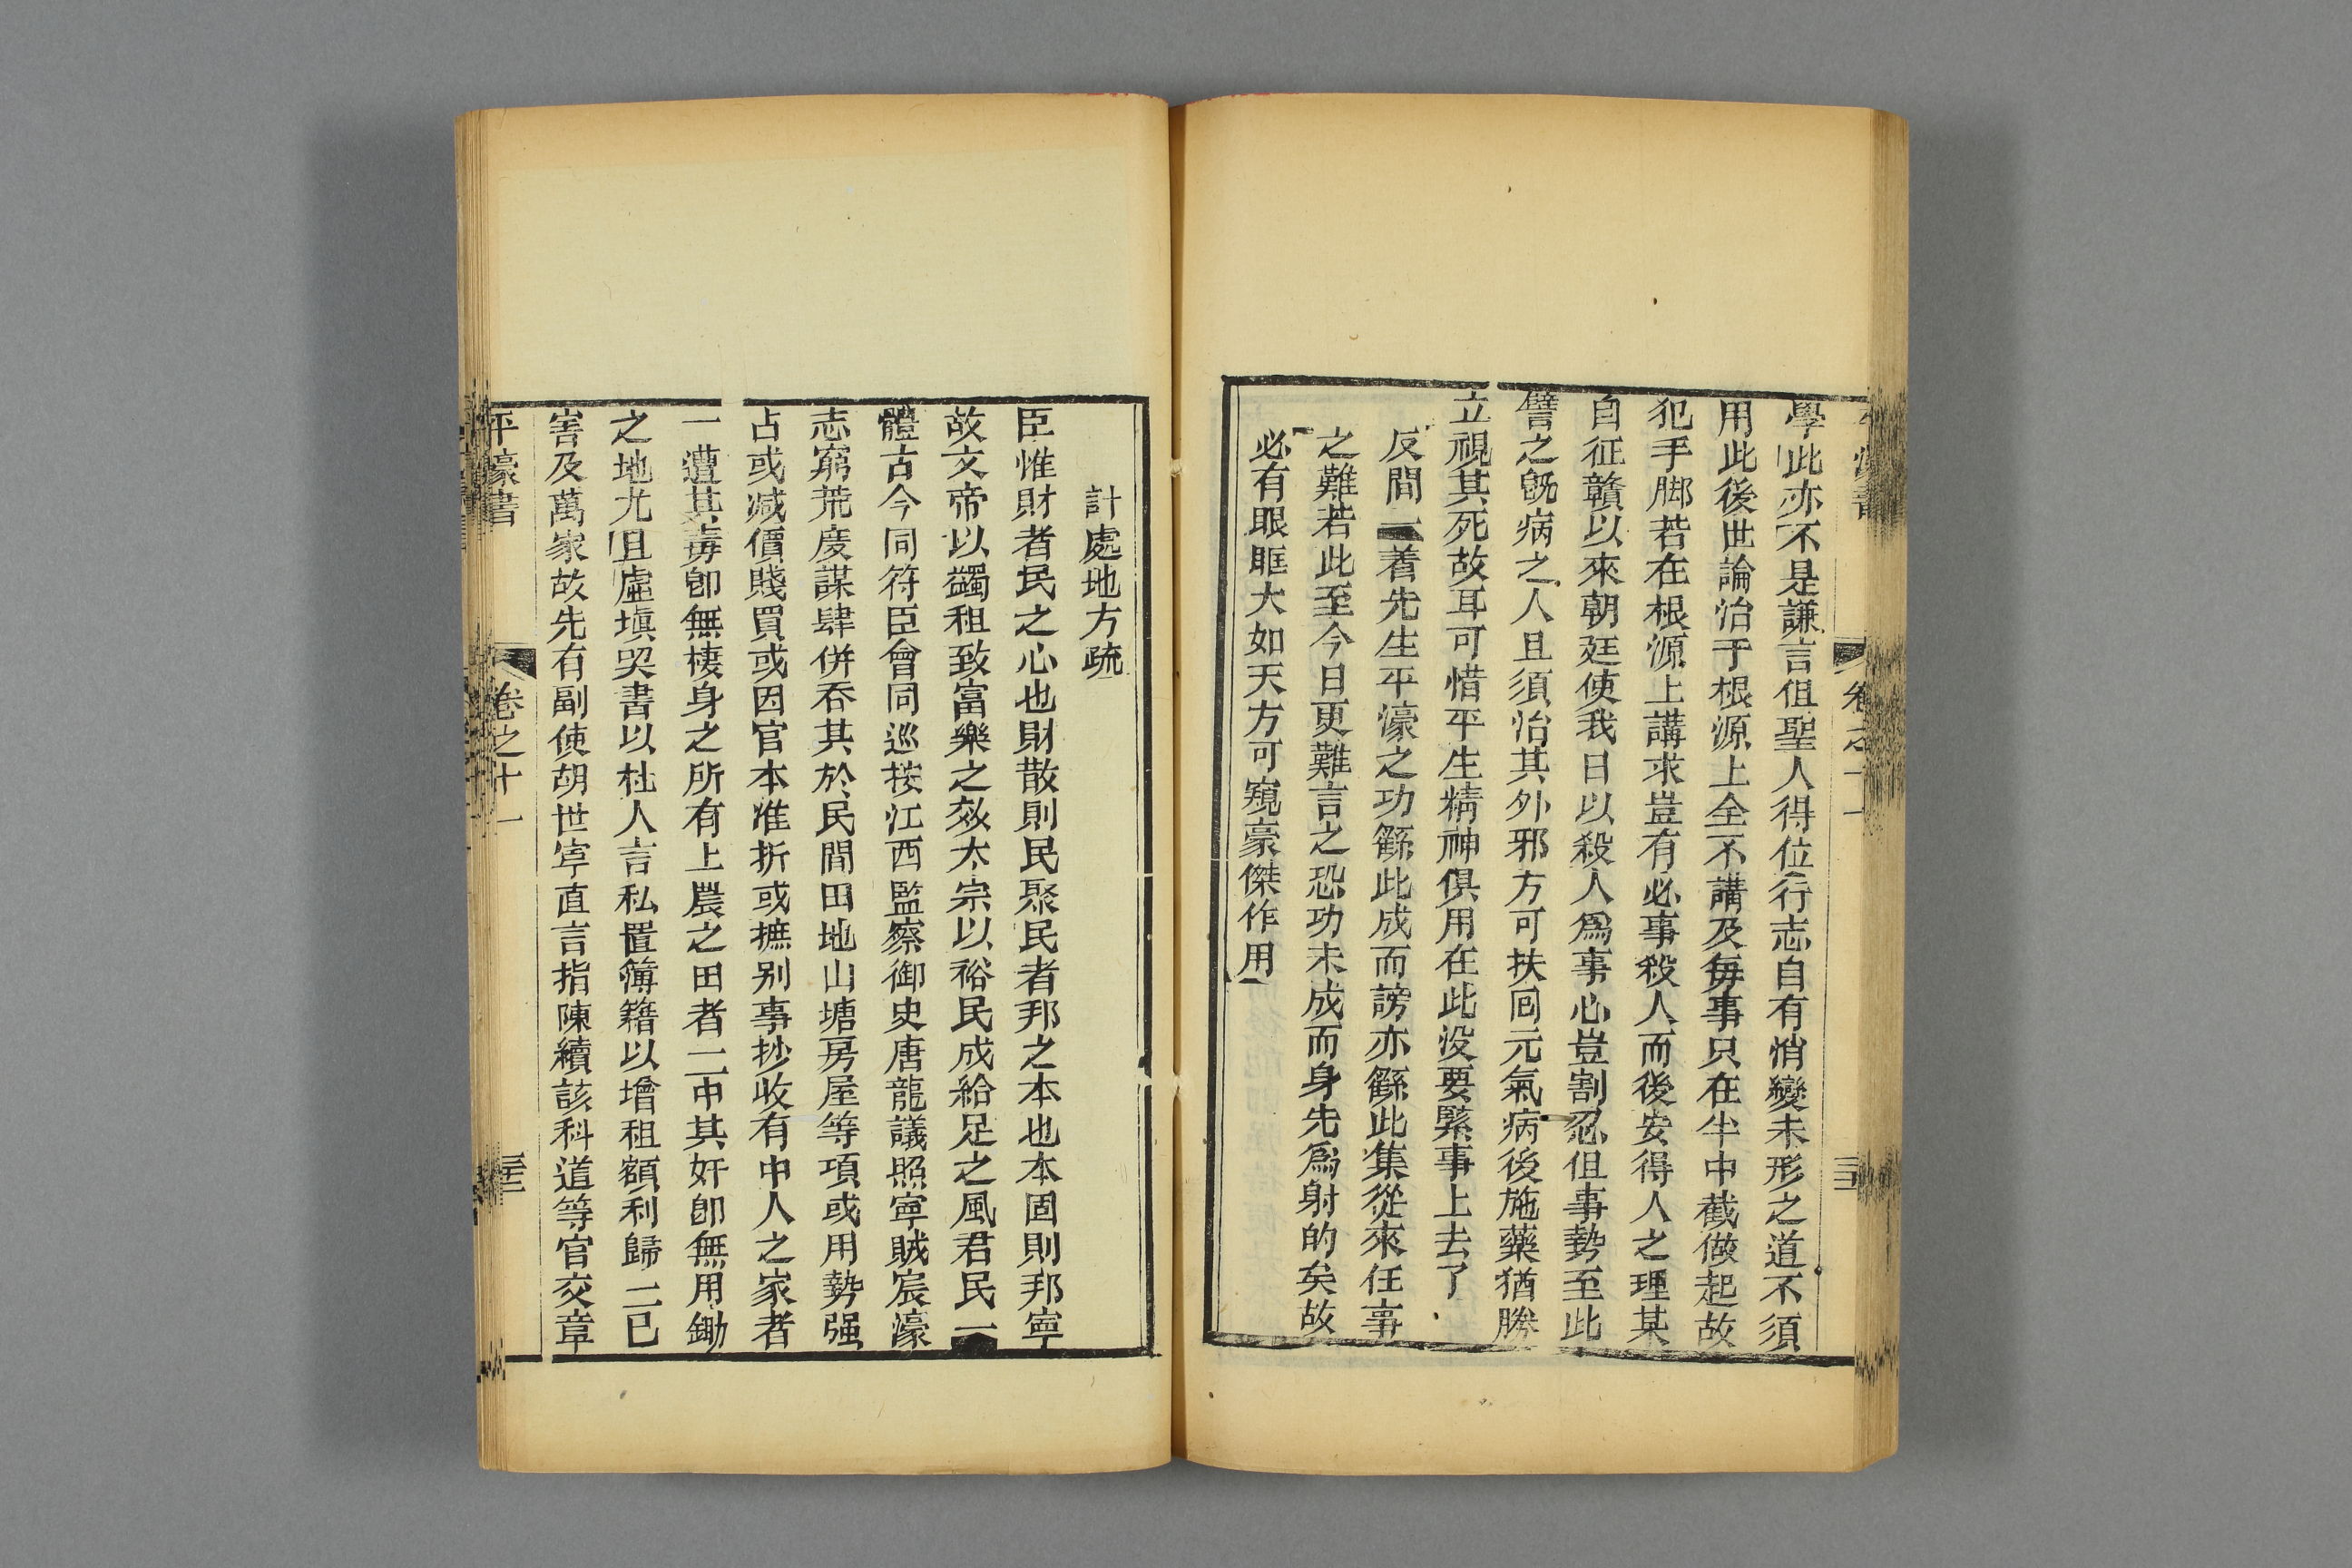 學此亦不是謙言但聖人得位行志自有消變未形之道不須
用此後世論治于根源上全不講及每事只在半中截做起故
犯手脚若在根源上講求豈有必事殺人而後安得人之理某
自征贛以來朝廷使我日以殺人爲事心豈割忍但事勢至此
譬之旣病之人且須治其外邪方可扶回元氣病後施藥猶勝
立視其死故耳可惜平生精神俱用在此没要緊事上去了
反間一着先生平濠之功繇此成而謗亦繇此集從來任事
之難若此至今日更難言之恐功未成而身先爲射的矣故
必有眼眶大如天方可窺豪傑作用
計處地方疏
臣惟財者民之心也財散則民聚民者邦之本也本固則邦寧
故文帝以蠲租致富樂之效太宗以裕民成給足之風君民一
體古今同符臣會同巡按江西監察御史唐龍議照寧賊宸濠
志窮荒度謀肆併吞其於民間田地山塘房屋等項或用勢强
占或減價賤買或因官本准折或摭别事抄收有中人之家者
一遭其毒卽無棲身之所有上農之田者一中其奸卽無用鋤
之地尤且虛塡契書以杜人言私置簿籍以增租額利歸一己
害及萬家故先有副使胡世寧直言指陳續該科道等官交章
平濠書 卷之十一 三